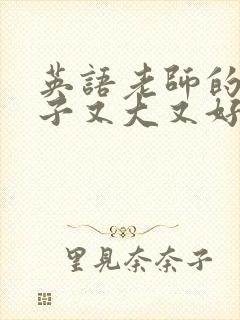 英語老師的
子又大又好
里見奈奈子